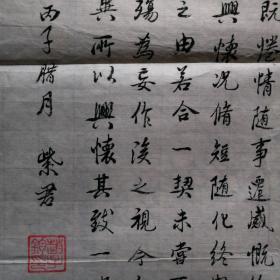 既惓情隨事遷感慨
興懷況脩短隨化終
之由若合一契未嘗
殤為妄作後之視今
異所以興懷其致一
丙子腊月 紫君